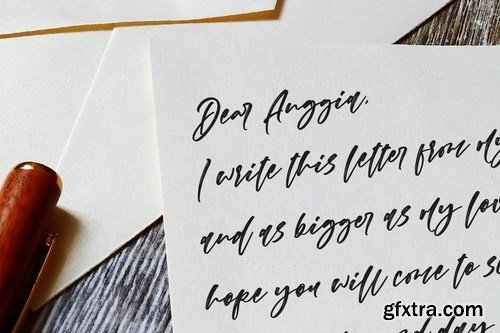 Dear Anggia,
I write this letter from my
and as bigger as my lov
hope you will come to s
day
gfxtra.com